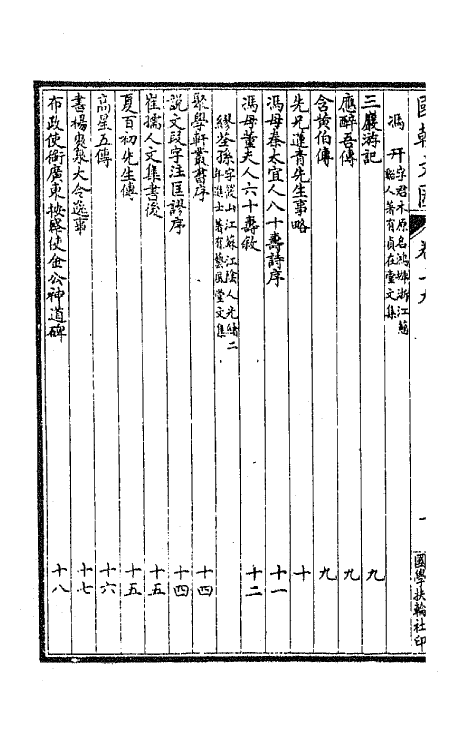 國朝文匯 卷十九 國學扶輪社印
馮幵字君木原名鴻墀浙江慈
谿人著有貞在堂文集
三巖游記 九
應醉吾傳 九
含黄伯傳 九
先兄蓮青先生事略 十
馮母秦太宜人八十壽詩序 十一
馮母董夫人六十壽敘 十二
繆荃孫字筱山江蘇江陰人光緒二
年進士著有藝風堂文集
聚學軒叢書序 十四
説文段字注匡謬序 十四
崔孺人文集書後 十五
夏百初先生傳 十五
高星五傳 十六
書楊泉大令逸事 十七
布政使銜廣東按察使金公神道碑 十八